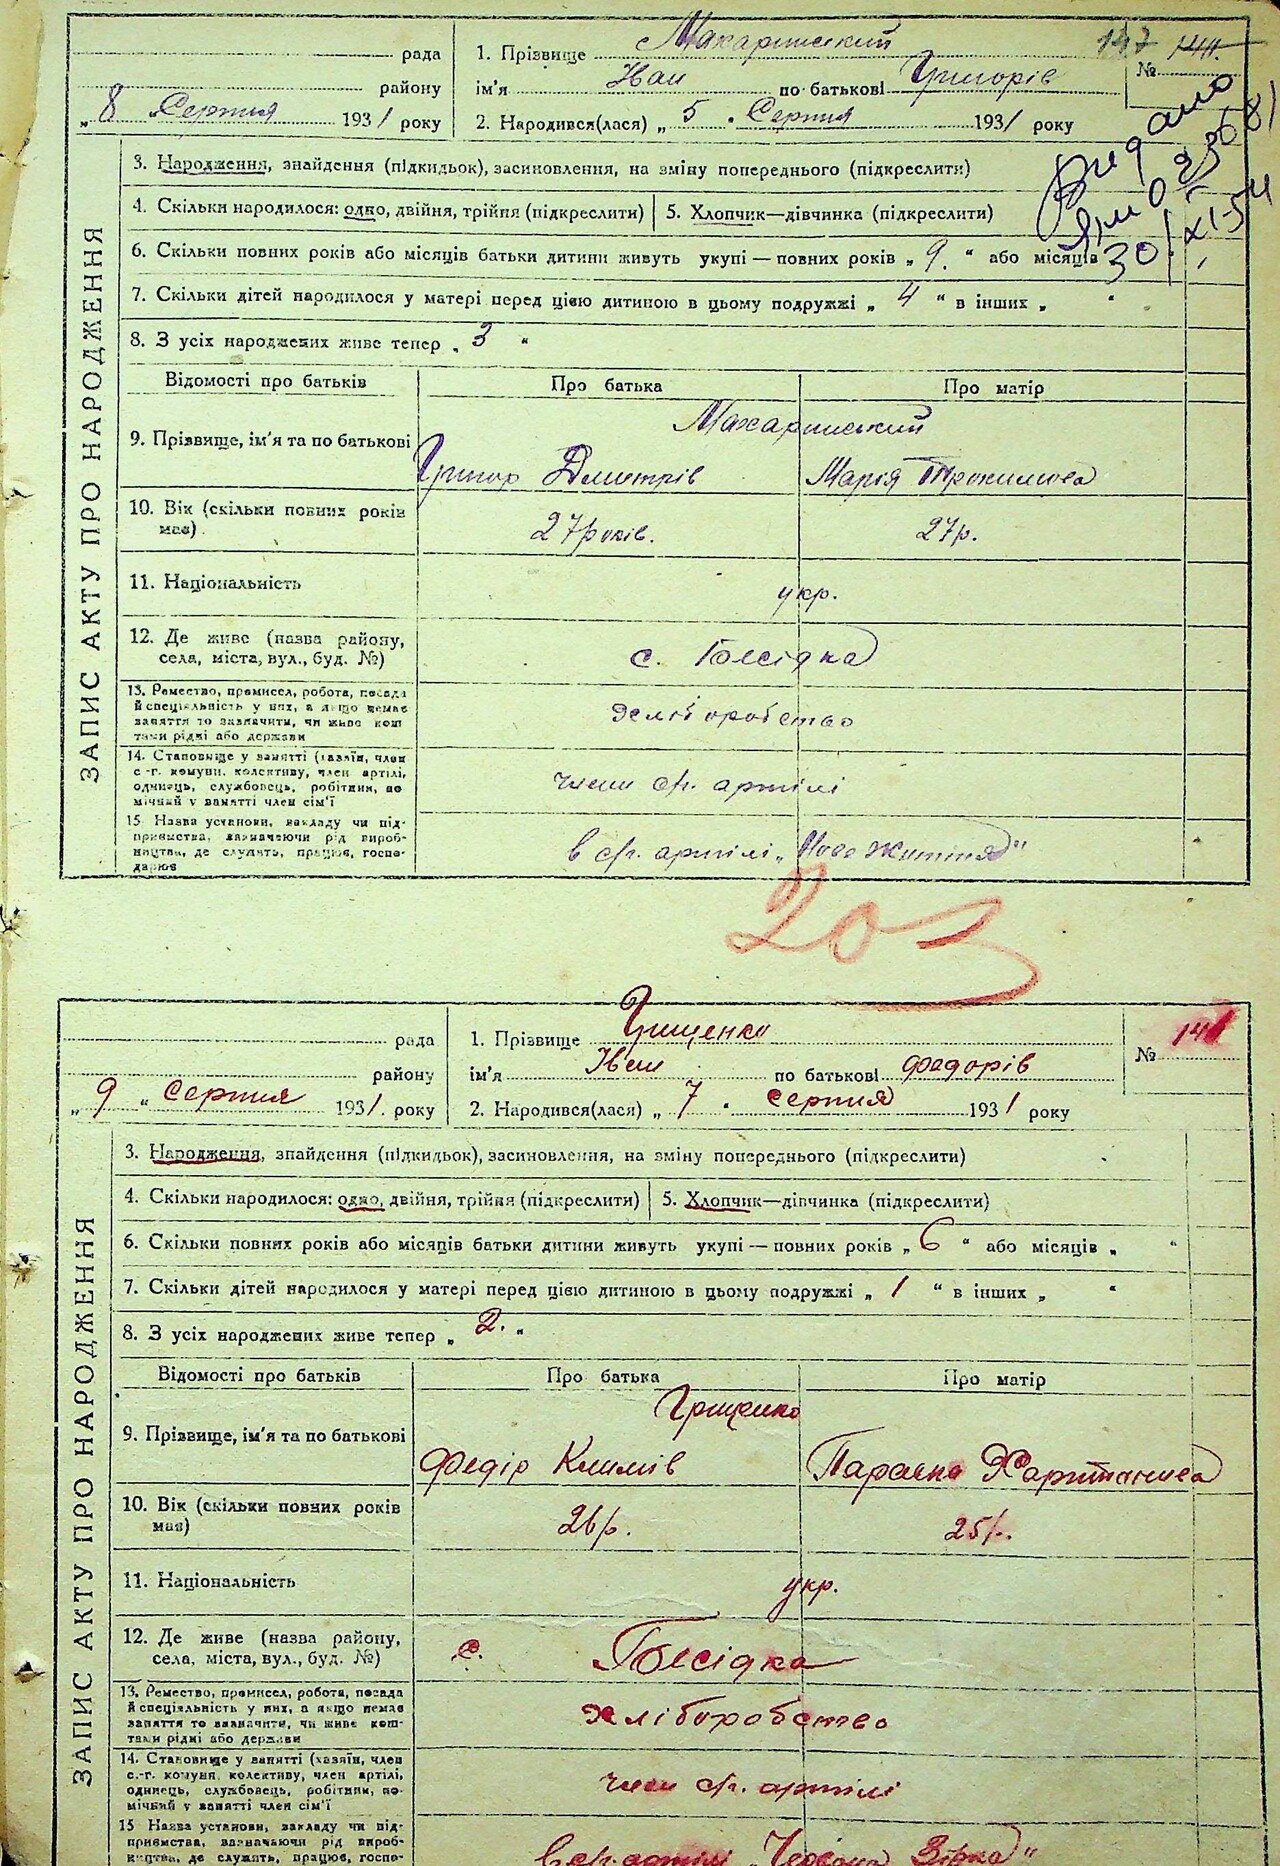 рада
району
„ 8 „ Серпня 1931 року
1. Прізвище Макаринський
ім'я Іван по батькові Григорів
2. Народився(лася) „ 5 „ Серпня 1931 року
147 144.
№
видано
ЯЮ
30/XI-54
ЗАПИС АКТУ ПРО НАРОДЖЕННЯ
3. Народження, знайдення (підкидьок), засиновлення, на зміну попереднього (підкреслити)
4. Скільки народилося: одно, двійня, трійня (підкреслити) 5. Хлопчик—дівчинка (підкреслити)
6. Скільки повних років або місяців батьки дитини живуть укупі — повних років „ 9. “ або місяців
7. Скільки дітей народилося у матері перед цією дитиною в цьому подружжі „ 4 “ в інших „ “
8. З усіх народжених живе тепер „ 3 “
Відомості про батьків Про батька Про матір
9. Прізвище, ім'я та по батькові
Макаринський
Григор Дмитрів Марія Трохимова
10. Вік (скільки повних років має)
27 років. 27 р.
11. Національність укр.
12. Де живе (назва району, села, міста, вул., буд. №)
с.
13. Ремество, промисел, робота, посада
й спеціяльність у них, а якщо немає
заняття то зазначити, чи живе кош
тами рідні або держави
хліборобство
14. Становище у занятті (хазяїн, член
с.-г. комуни, колективу, член артілі,
одинець, службовець, робітник, по
мічний у занятті член сім'ї
член с/г. артілі
15 Назва установи, закладу чи під-
приємства, зазначаючи рід вироб-
ництва, де служить, працює, госпо-
дарює
в с/г. артілі „Нове Життя“
203
рада
району
„ 9 “ серпня 1931. року
1. Прізвище Грищенко
ім'я Іван по батькові Федорів
2. Народився(лася) „ 7 “ серпня 1931 року
№ 141
ЗАПИС АКТУ ПРО НАРОДЖЕННЯ
3. Народження, знайдення (підкидьок), засиновлення, на зміну попереднього (підкреслити)
4. Скільки народилося: одно, двійня, трійня (підкреслити) 5. Хлопчик—дівчинка (підкреслити)
6. Скільки повних років або місяців батьки дитини живуть укупі — повних років „ 6 “ або місяців „ “
7. Скільки дітей народилося у матері перед цією дитиною в цьому подружжі „ 1 “ в інших „ “
8. З усіх народжених живе тепер „ 2. “
Відомості про батьків Про батька Про матір
9. Прізвище, ім'я та по батькові
Грищенко
Федір Климів Параска Хаританова
10. Вік (скільки повних років має)
26 р. 25 р.
11. Національність укр.
12. Де живе (назва району, села, міста, вул., буд. №)
с.
13. Ремество, промисел, робота, посада
й спеціяльність у них, а якщо немає
заняття то зазначити, чи живе кош-
тами рідні або держави
хліборобство
14. Становище у занятті (хазяїн, член
с.-г. комуни, колективу, член артілі,
одинець, службовець, робітник, по-
мічний у занятті член сім'ї
член с/г. артілі
15 Назва установи, закладу чи під-
приємства, зазначаючи рід вироб-
ництва, де служить, працює, госпо-
в с/г. артілі „Червона Зірка“